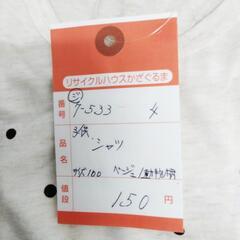 リサイクルハウスかざぐるま
ジ
番号 7-533 4
品名 子供 シャツ
サイズ100 ベージュ/動物柄
値段 150円